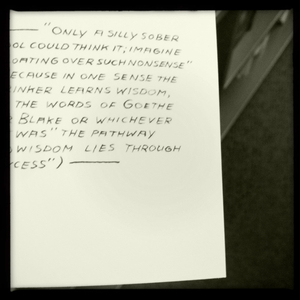 "ONLY A SILLY SOBER
OOL COULD THINK IT, IMAGINE
OATING OVER SUCH NONSENSE"
ECAUSE IN ONE SENSE THE
INKER LEARNS WISDOM,
THE WORDS OF GOETHE
R BLAKE OR WHICHEVER
WAS" THE PATHWAY
WISDOM LIES THROUGH
CESS")